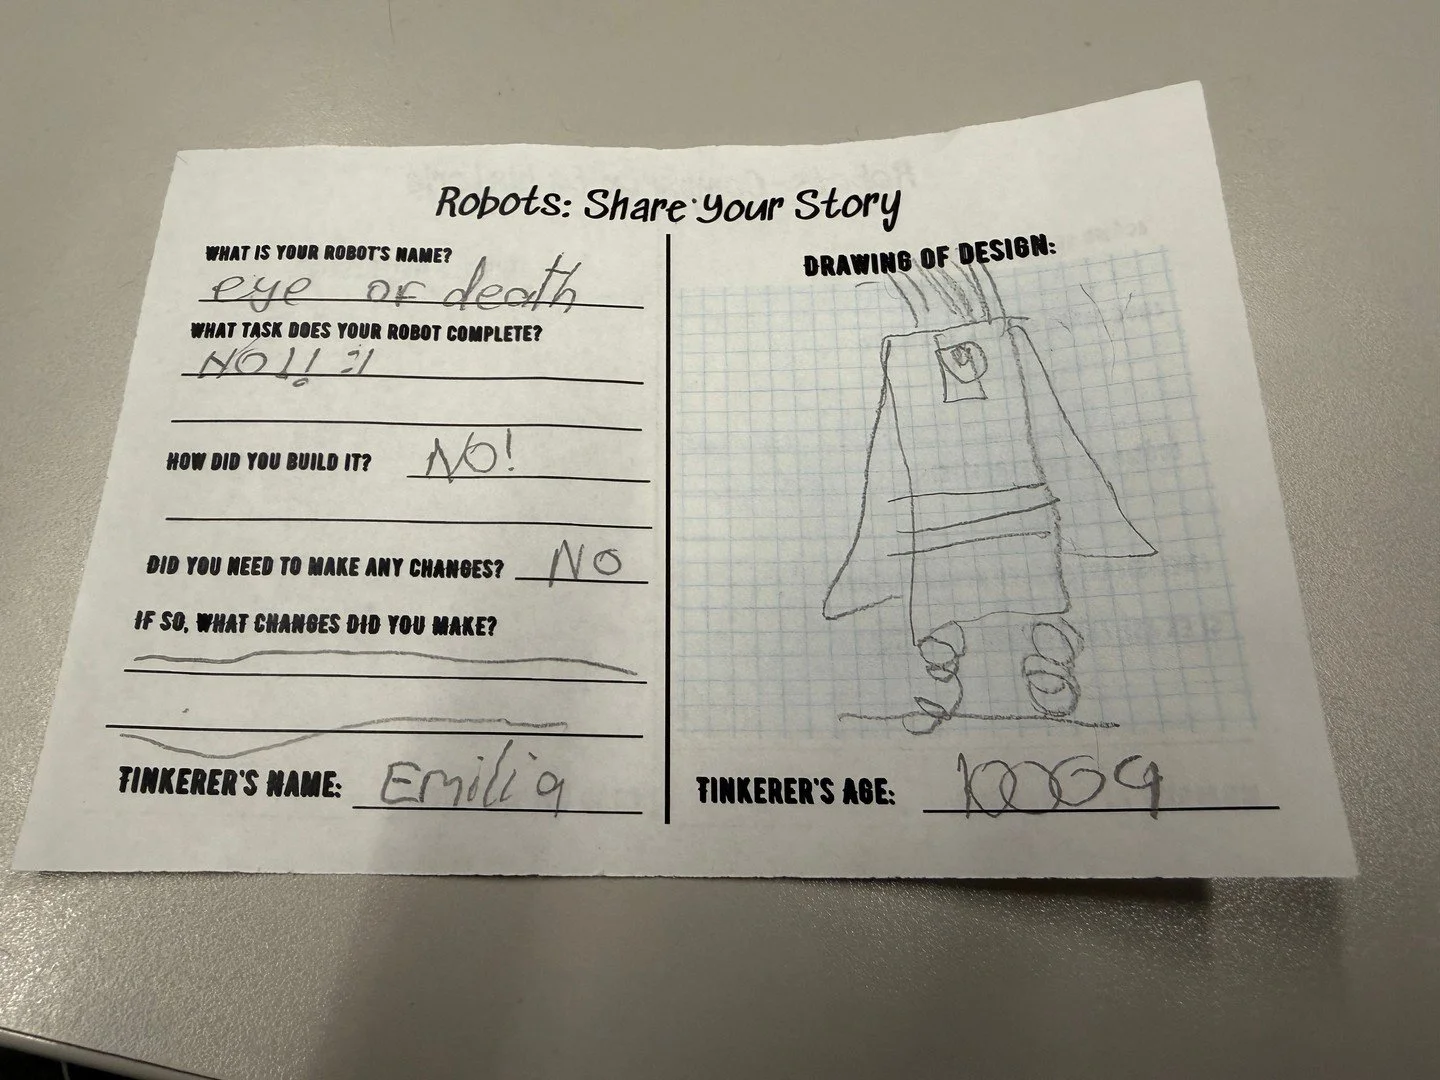 Robots: Share Your Story
WHAT IS YOUR ROBOT'S NAME?
eye of death
WHAT TASK DOES YOUR ROBOT COMPLETE?
NO!! :l
HOW DID YOU BUILD IT? NO!
DID YOU NEED TO MAKE ANY CHANGES? NO
IF SO, WHAT CHANGES DID YOU MAKE?
TINKERER'S NAME: Emilia
DRAWING OF DESIGN:
TINKERER'S AGE: 10009